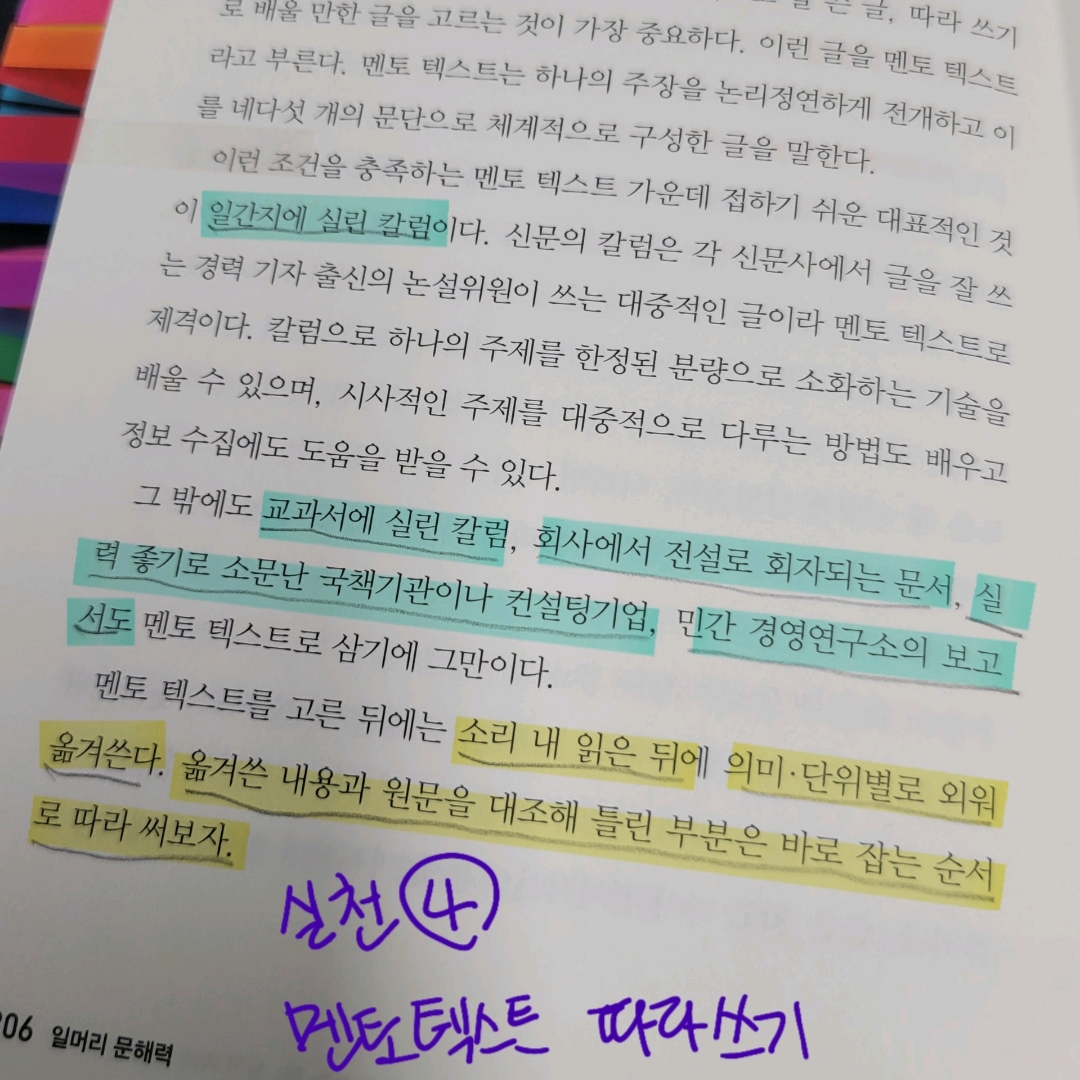 글, 따라 쓰기
로 배울 만한 글을 고르는 것이 가장 중요하다. 이런 글을 멘토 텍스트
라고 부른다. 멘토 텍스트는 하나의 주장을 논리정연하게 전개하고 이
를 네다섯 개의 문단으로 체계적으로 구성한 글을 말한다.
이런 조건을 충족하는 멘토 텍스트 가운데 접하기 쉬운 대표적인 것
이 일간지에 실린 칼럼이다. 신문의 칼럼은 각 신문사에서 글을 잘 쓰
는 경력 기자 출신의 논설위원이 쓰는 대중적인 글이라 멘토 텍스트로
제격이다. 칼럼으로 하나의 주제를 한정된 분량으로 소화하는 기술을
배울 수 있으며, 시사적인 주제를 대중적으로 다루는 방법도 배우고
정보 수집에도 도움을 받을 수 있다.
그 밖에도 교과서에 실린 칼럼, 회사에서 전설로 회자되는 문서, 실
력 좋기로 소문난 국책기관이나 컨설팅기업, 민간 경영연구소의 보고
서도 멘토 텍스트로 삼기에 그만이다.
멘토 텍스트를 고른 뒤에는 소리 내 읽은 뒤에 의미·단위별로 외워
옮겨쓴다. 옮겨쓴 내용과 원문을 대조해 틀린 부분은 바로 잡는 순서
로 따라 써보자.
실천 ④
멘토텍스트 따라쓰기
206 일머리 문해력